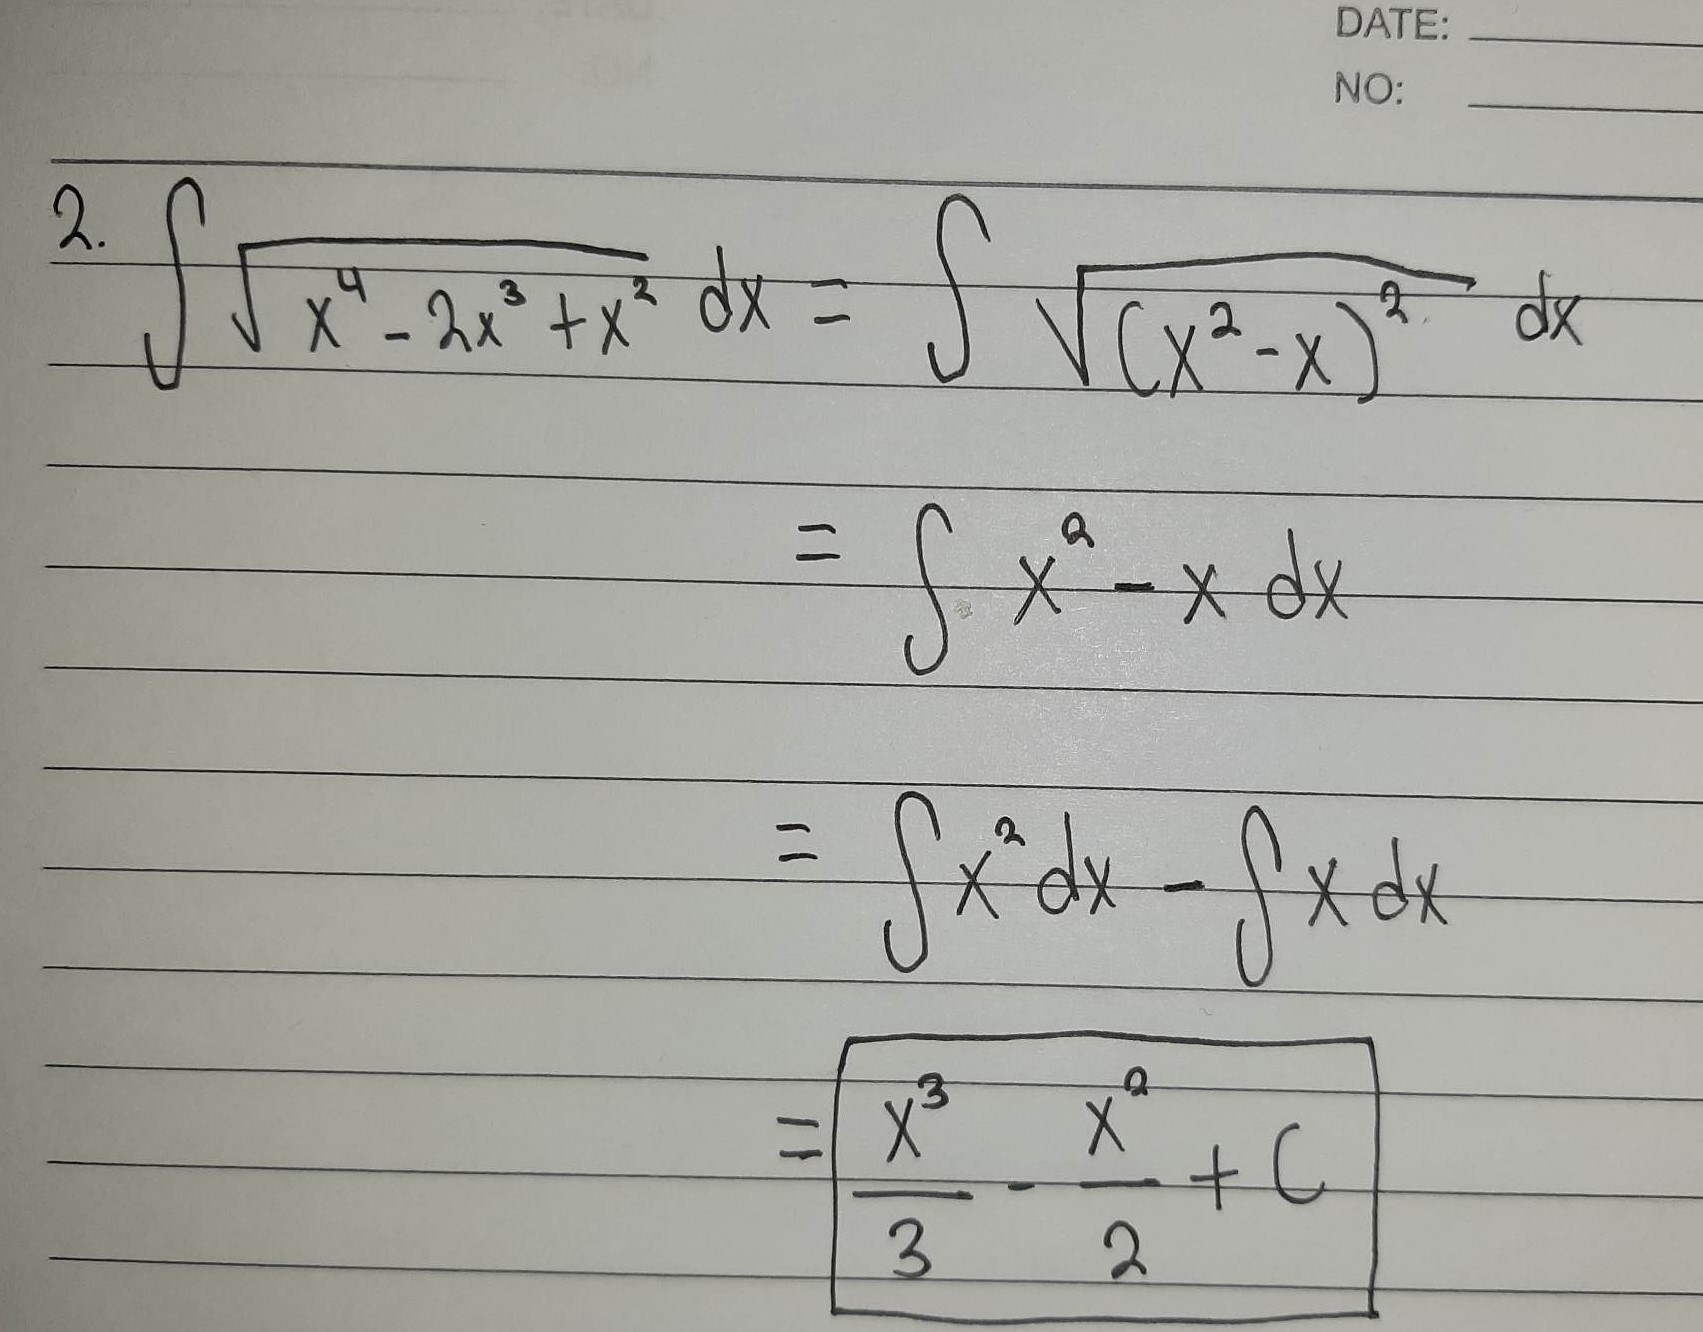 DATE:
NO:
2. ∫ √(x⁴ - 2x³ + x²) dx = ∫ √((x² - x)²) dx
= ∫ x² - x dx
= ∫ x² dx - ∫ x dx
= x³/3 - x²/2 + C